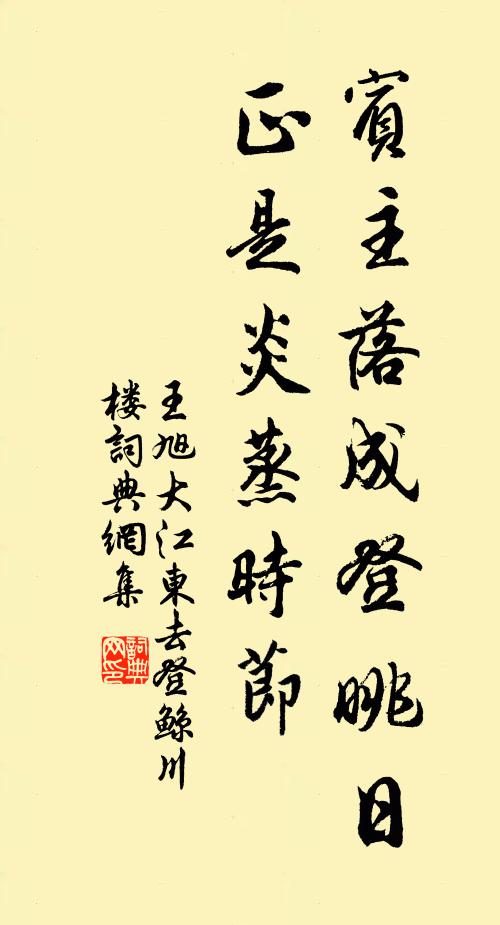 賓主落成登眺日
正是炎蒸時節
王旭大江東去登鲸川
楼詞典網集
詞典网印